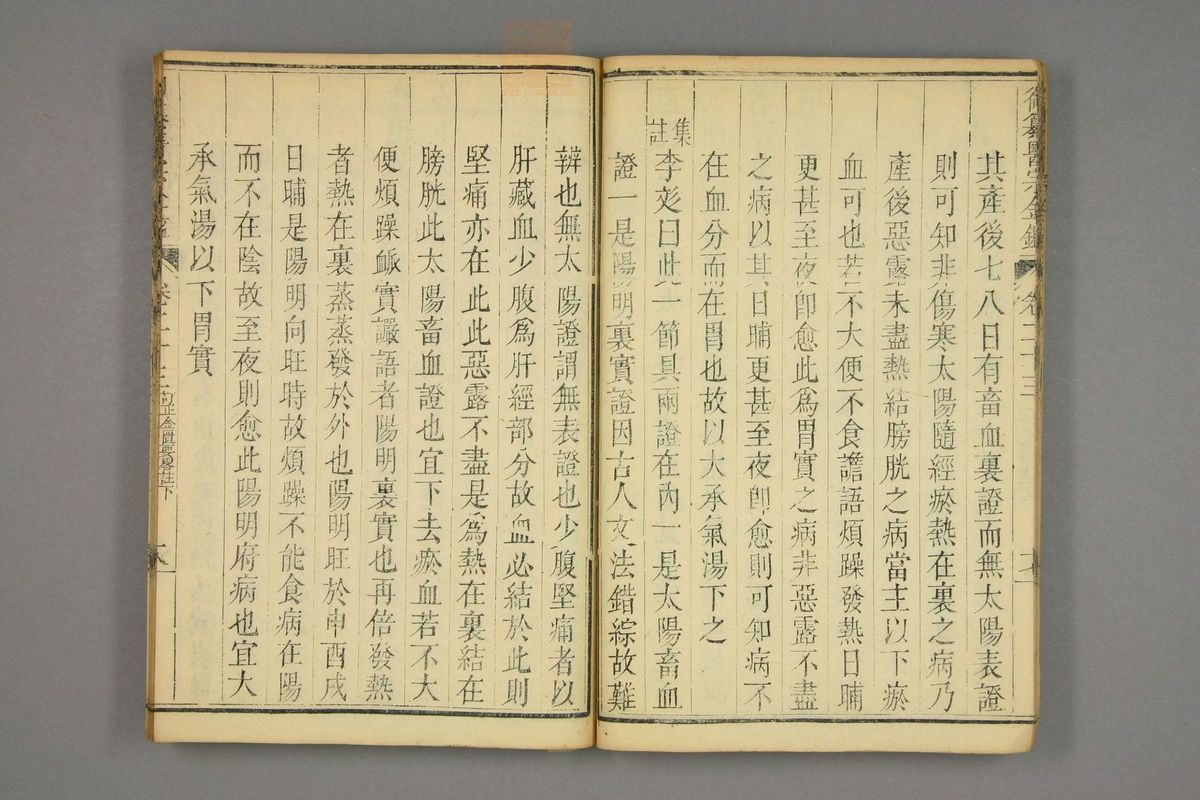 御纂醫宗金鑑 卷二十三
其產後七八日有畜血裏證而無太陽表證
則可知非傷寒太陽隨經瘀熱在裏之病乃
產後惡露未盡熱結膀胱之病當主以下瘀
血可也若不大便不食譫語煩躁發熱日晡
更甚至夜卽愈此爲胃實之病非惡露不盡
之病以其日晡更甚至夜卽愈則可知病不
在血分而在胃也故以大承氣湯下之
集註
李彣曰此一節具兩證在內一是太陽畜血
證一是陽明裏實證因古人文法錯綜故難
辨也無太陽證謂無表證也少腹堅痛者以
肝藏血少腹爲肝經部分故血必結於此則
堅痛亦在此此惡露不盡是爲熱在裏結在
膀胱此太陽畜血證也宜下去瘀血若不大
便煩躁脈實讝語者陽明裏實也再倍發熱
者熱在裏蒸蒸發於外也陽明旺於申酉戌
日晡是陽明向旺時故煩躁不能食病在陽
而不在陰故至夜則愈此陽明府病也宜大
承氣湯以下胃實
卷二十三 訂正金匱要畧註下